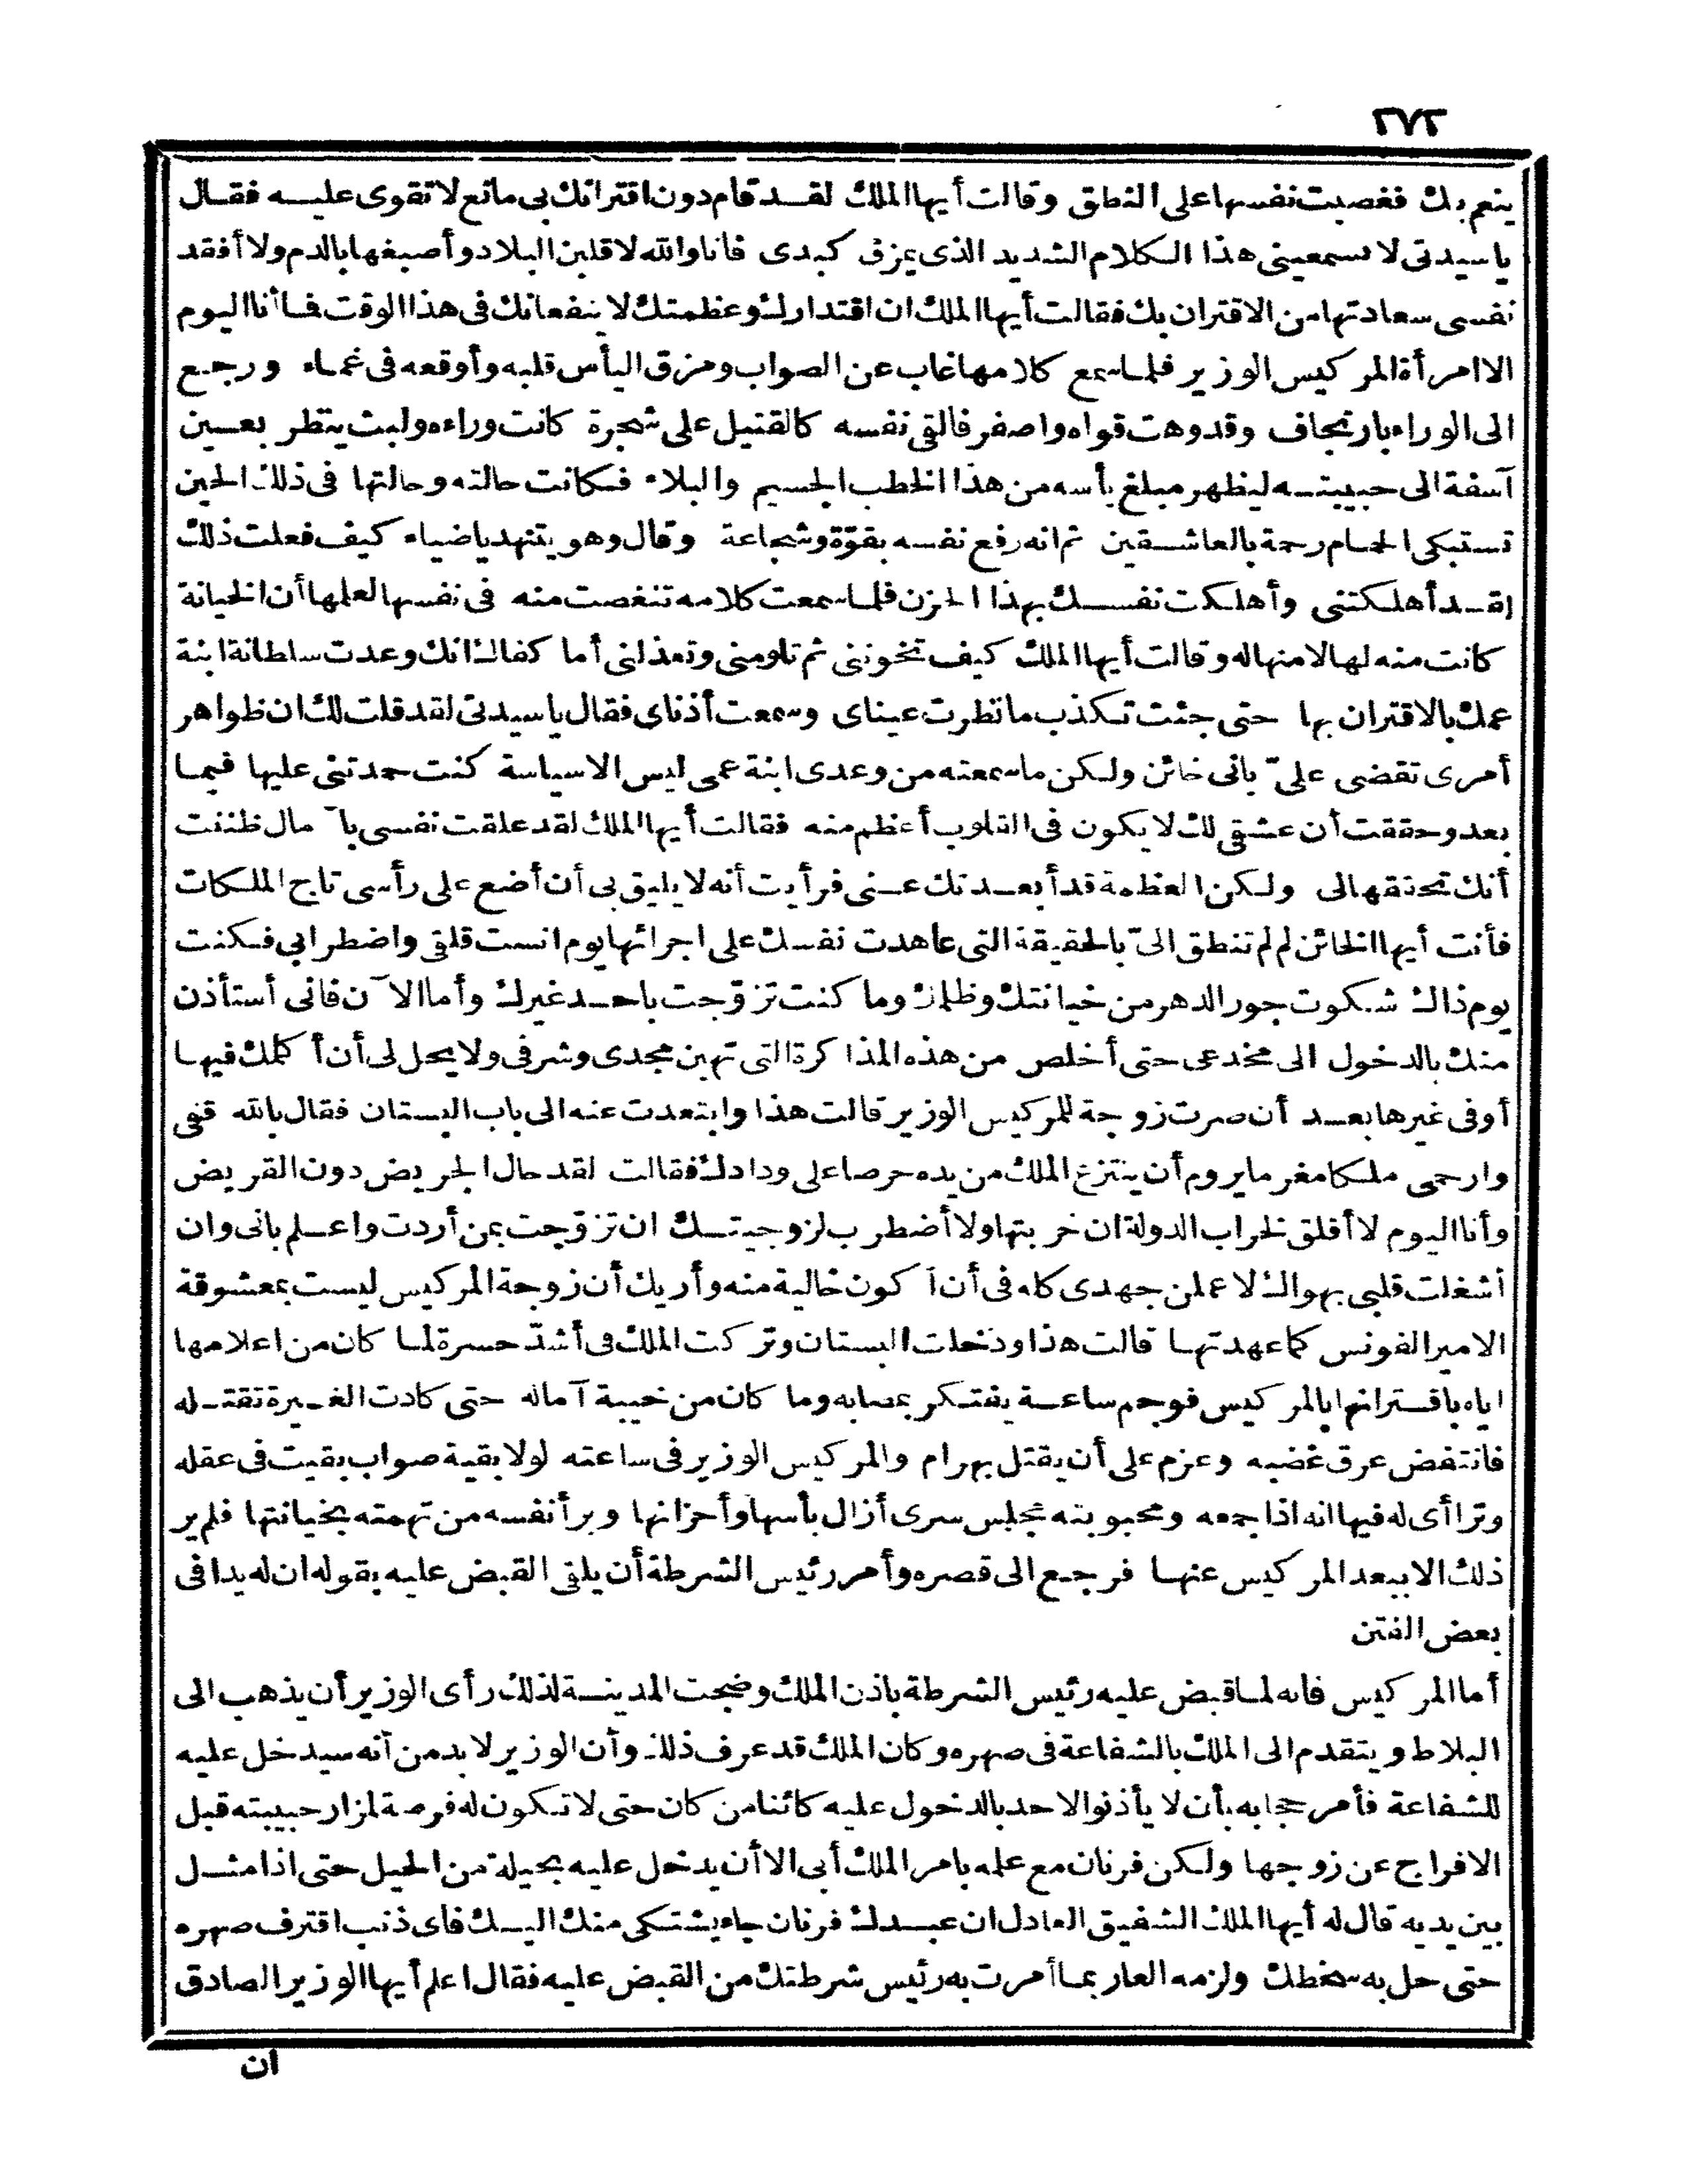 ٢٧٢
ينعم بك فغصبت نفسها على النطق وقالت أيها الملك لقد قام دون اقترانك بى مانع لا تقوى عليه فقال
يا سيدتى لا تسمعينى هذا الكلام الشديد الذى يمزق كبدى فانا والله لاقلبن البلاد وأصبغها بالدم ولا أفقد
نفسى سعادتها من الاقتران بك فقالت أيها الملك ان اقتدارك وعظمتك لا ينفعانك فى هذا الوقت فما أنا اليوم
الا امرأة المركيس الوزير فلما سمع كلامها غاب عن الصواب ومزق اليأس قلبه وأوقعه فى غماء ورجع
الى الوراء بارتجاف وقد وهت قواه واصفر فالقى نفسه كالقتيل على شجرة كانت وراءه ولبث ينظر بعين
آسفة الى حبيبته ليظهر مبلغ يأسه من هذا الخطب الجسيم والبلاء فكانت حالته وحالتها فى ذلك الحين
تستبكى الحمام رحمة بالعاشقين ثم انه رفع نفسه بقوّة وشجاعة وقال وهو يتنهد يا ضياء كيف فعلت ذلك
لقد أهلكتنى وأهلكت نفسك بهذا الحزن فلما سمعت كلامه تنغصت منه فى نفسها لعلمها أن الخيانة
كانت منه لها لا منها له وقالت أيها الملك كيف تخوننى ثم تلومنى وتعذلنى أما كفاك انك وعدت سلطانة ابنة
عمك بالاقتران بها حتى جئت تكذب ما نظرت عيناى وسمعت أذناى فقال يا سيدتى لقد قلت لك ان ظواهر
أمرى تقضى علىّ بانى خائن ولكن ما سمعته من وعدى ابنة عمى ليس الا سياسة كنت حمدتنى عليها فيما
بعد وحققت أن عشقى لك لا يكون فى القلوب أعظم منه فقالت أيها الملك لقد علقت نفسى بآمال ظننت
أنك تحققها لى ولكن العظمة قد أبعدتك عنى فرأيت أنه لا يليق بى أن أضع على رأسى تاج الملكات
فأنت أيها الخائن لم لم تنطق الىّ بالحقيقة التى عاهدت نفسك على اجرائها يوم انست قلقى واضطرابى فكنت
يوم ذاك شكوت جور الدهر من خيانتك وظلمك وما كنت تزوّجت باحد غيرك وأما الآن فانى أستأذن
منك بالدخول الى مخدعى حتى أخلص من هذه المذاكرة التى تهين مجدى وشرفى ولا يحل لى أن أكلمك فيها
أو فى غيرها بعد أن صرت زوجة للمركيس الوزير قالت هذا وابتعدت عنه الى باب البستان فقال بالله قفى
وارحمى ملكا مغرما يروم أن ينتزع الملك من يده حرصا على ودادك فقالت لقد حال الجريض دون القريض
وأنا اليوم لا أقلق لخراب الدولة ان خربتها ولا أضطرب لزوجيتك ان تزوّجت بمن أردت واعلم بانى وان
أشغلت قلبى بهواك لا عملن جهدى كله فى أن أكون خالية منه وأريك أن زوجة المركيس ليست بمعشوقة
الامير الفونس كما عهدتها قالت هذا ودخلت البستان وتركت الملك فى أشدّ حسرة لما كان من اعلامها
اياه باقترانها بالمركيس فوجم ساعة يفتكر بمصابه وما كان من خيبة آماله حتى كادت الغيرة تقتله
فانتفض عرق غضبه وعزم على أن يقتل بهرام والمركيس الوزير فى ساعته لولا بقية صواب بقيت فى عقله
وتراأى له فيها انه اذا جمعه ومحبوبته مجلس سرى أزال يأسها وأحزانها وبرأ نفسه من تهمته بخيانتها فلم ير
ذلك الا ببعد المركيس عنها فرجع الى قصره وأمر رئيس الشرطة أن يلقى القبض عليه بقوله ان له يدا فى
بعض الفتن
أما المركيس فانه لما قبض عليه رئيس الشرطة باذن الملك وضجت المدينة لذلك رأى الوزير أن يذهب الى
البلاط ويتقدم الى الملك بالشفاعة فى صهره وكان الملك قد عرف ذلك وأن الوزير لا بد من أنه سيدخل عليه
للشفاعة فأمر حجابه بأن لا يأذنوا لاحد بالدخول عليه كائنا من كان حتى لا تكون له فرصة لمزار حبيبته قبل
الافراج عن زوجها ولكن فرنان مع علمه بامر الملك أبى الا أن يدخل عليه بحيلة من الحيل حتى اذا مثل
بين يديه قال له أيها الملك الشفيق العادل ان عبدك فرنان جاء يشتكى منك اليك فاى ذنب اقترف صهره
حتى حل به سخطك ولزمه العار بما أمرت به رئيس شرطتك من القبض عليه فقال اعلم أيها الوزير الصادق
ان